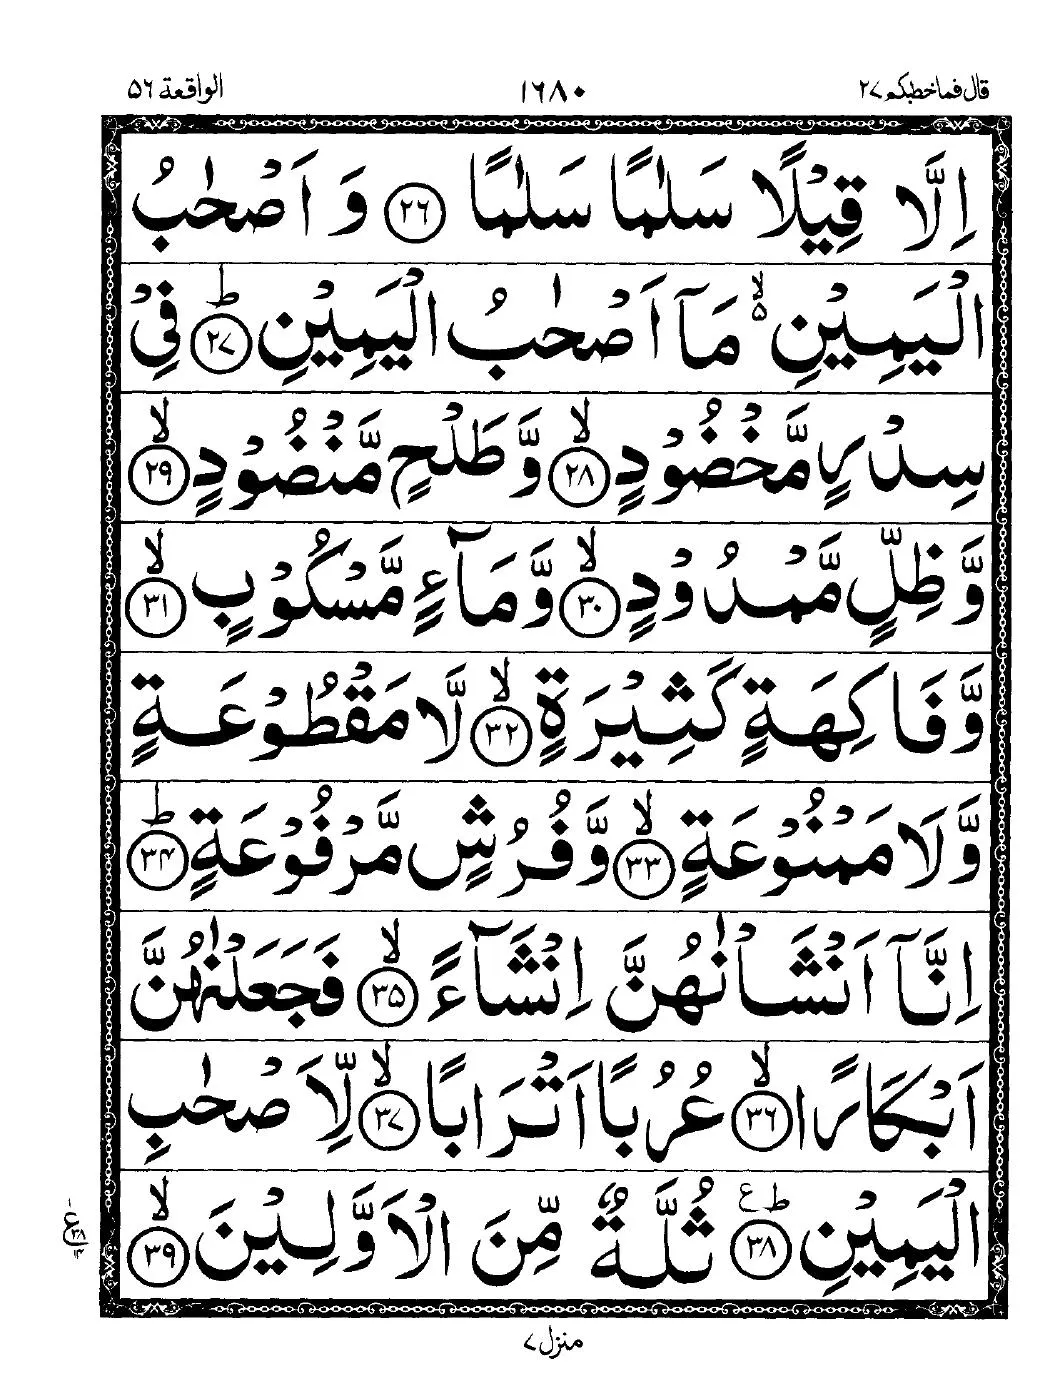 قال فماخطبکم ۲۷ ۱٦۸۰ الواقعة ۵٦
اِلَّا قِيْلًا سَلٰمًا سَلٰمًا ۲٦ وَ اَصْحٰبُ
الْيَمِيْنِ ۙ۵ مَآ اَصْحٰبُ الْيَمِيْنِ ؕ ۲۷ فِيْ
سِدْرٍ مَّخْضُوْدٍ ۙ ۲۸ وَّ طَلْحٍ مَّنْضُوْدٍ ۙ ۲۹
وَّ ظِلٍّ مَّمْدُوْدٍ ۙ ۳۰ وَّ مَآءٍ مَّسْكُوْبٍ ۙ ۳۱
وَّ فَاكِهَةٍ كَثِيْرَةٍ ۙ ۳۲ لَّا مَقْطُوْعَةٍ
وَّ لَا مَمْنُوْعَةٍ ۙ ۳۳ وَّ فُرُشٍ مَّرْفُوْعَةٍ ؕ ۳۴
اِنَّآ اَنْشَاْنٰهُنَّ اِنْشَآءً ۙ ۳۵ فَجَعَلْنٰهُنَّ
اَبْكَارًا ۙ ۳٦ عُرُبًا اَتْرَابًا ۙ ۳۷ لِّاَصْحٰبِ
الْيَمِيْنِ ؕع ۳۸ ثُلَّةٌ مِّنَ الْاَوَّلِيْنَ ۙ ۳۹
۱
ع
۳۸
۱۴
منزل ۷